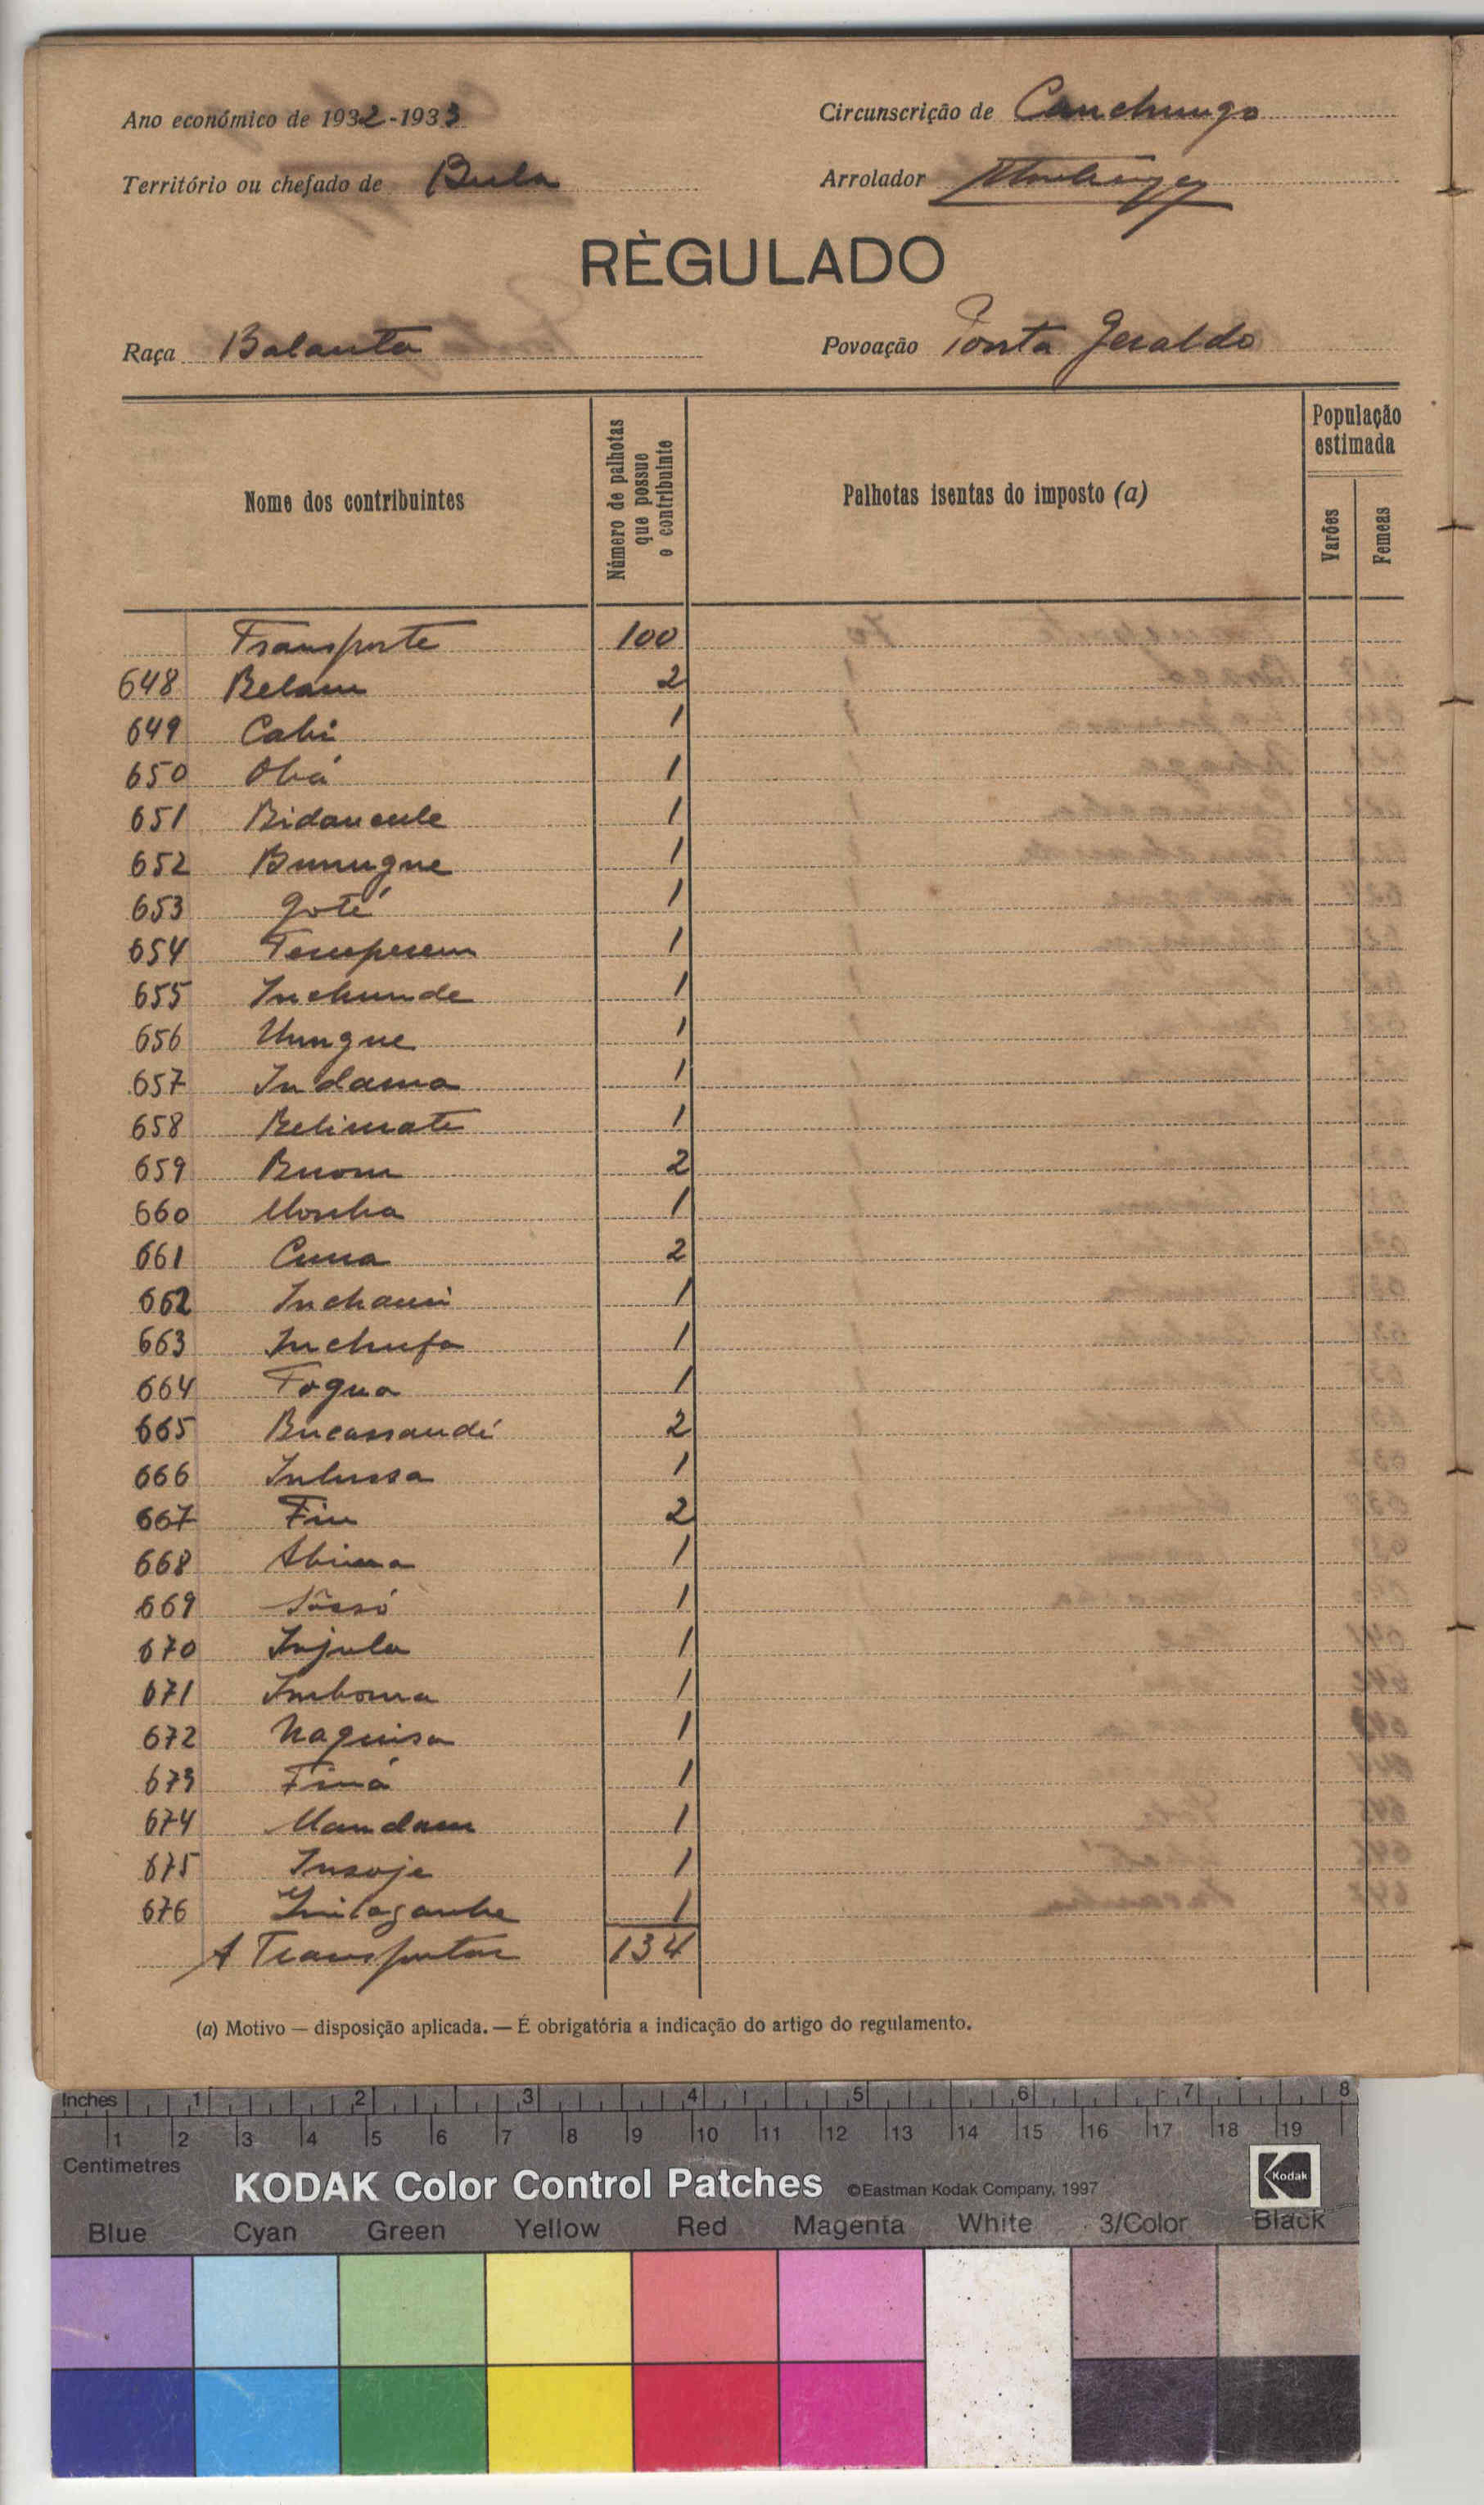 Ano económico de 1932-1933
Circunscrição de Canchungo
Território ou chefado de Bula
Arrolador
RÈGULADO
Raça Balanta
Povoação Ponta Geraldo
Nome dos contribuintes
Número de palhotas que possue o contribuinte
Palhotas isentas do imposto (a)
População estimada
Varões
Femeas
Transporte 100
648 Belam 2
649 Cabi 1
650 Obá 1
651 Bidancule 1
652 Bunugne 1
653 Goté 1
654 1
655 Inchunde 1
656 Ungue 1
657 Indama 1
658 Belimate 1
659 Buom 2
660 1
661 Cuna 2
662 Inchami 1
663 Inchufa 1
664 Fogna 1
665 Bucassandé 2
666 1
667 Fiu 2
668 Abina 1
669 1
670 Injula 1
671 Imboma 1
672 Naquisa 1
673 Finá 1
674 Mandam 1
675 Insoje 1
676 1
A Transportar 134
(a) Motivo — disposição aplicada. — É obrigatória a indicação do artigo do regulamento.
Inches 1 2 3 4 5 6 7 8
1 2 3 4 5 6 7 8 9 10 11 12 13 14 15 16 17 18 19
Centimetres
KODAK Color Control Patches ©Eastman Kodak Company, 1997 Kodak
Blue Cyan Green Yellow Red Magenta White 3/Color Black